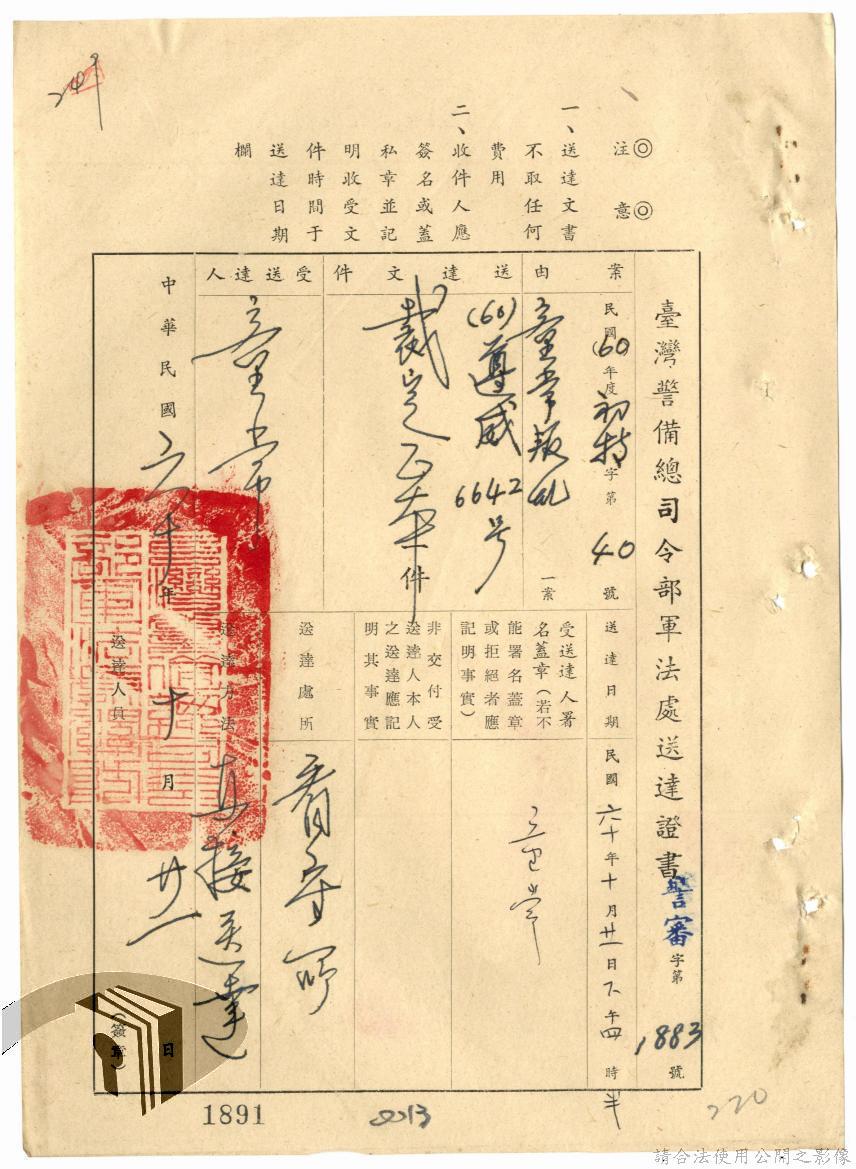 ◎注意◎
一、送達文書
不取任何
費用
二、收件人應
簽名或蓋
私章並記
明收受文
件時間于
送達日期
欄
臺灣警備總司令部軍法處送達證書警審字第1883號
案由
民國(60)年度初特字第40號
童常叛乱一案
送達文件
(60)遵威6642号
裁定正本件
受送達人
童常
送達日期
民國六十年十月廿一日下午四時半
受送達人署
名蓋章(若不
能署名蓋章
或拒絕者應
記明事實)
童常
非交付受
送達人本人
之送達應記
明其事實
送達處所
看守所
送達方法
直接送達
中華民國六十年十月廿一日
送達人員
(簽章)
1891
220
請合法使用公開之影像